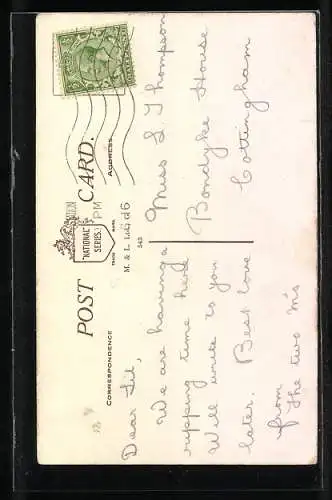 POST CARD.
"NATIONAL"
SERIES
TRADE MARK
M. & L. Ltd
543
CORRESPONDENCE
ADDRESS
PM
Dear Lil,
We are having a
ripping time here
Will write to you
later. Best love
from
The two M's
Miss L Thompson
Bondyke House
Cottingham